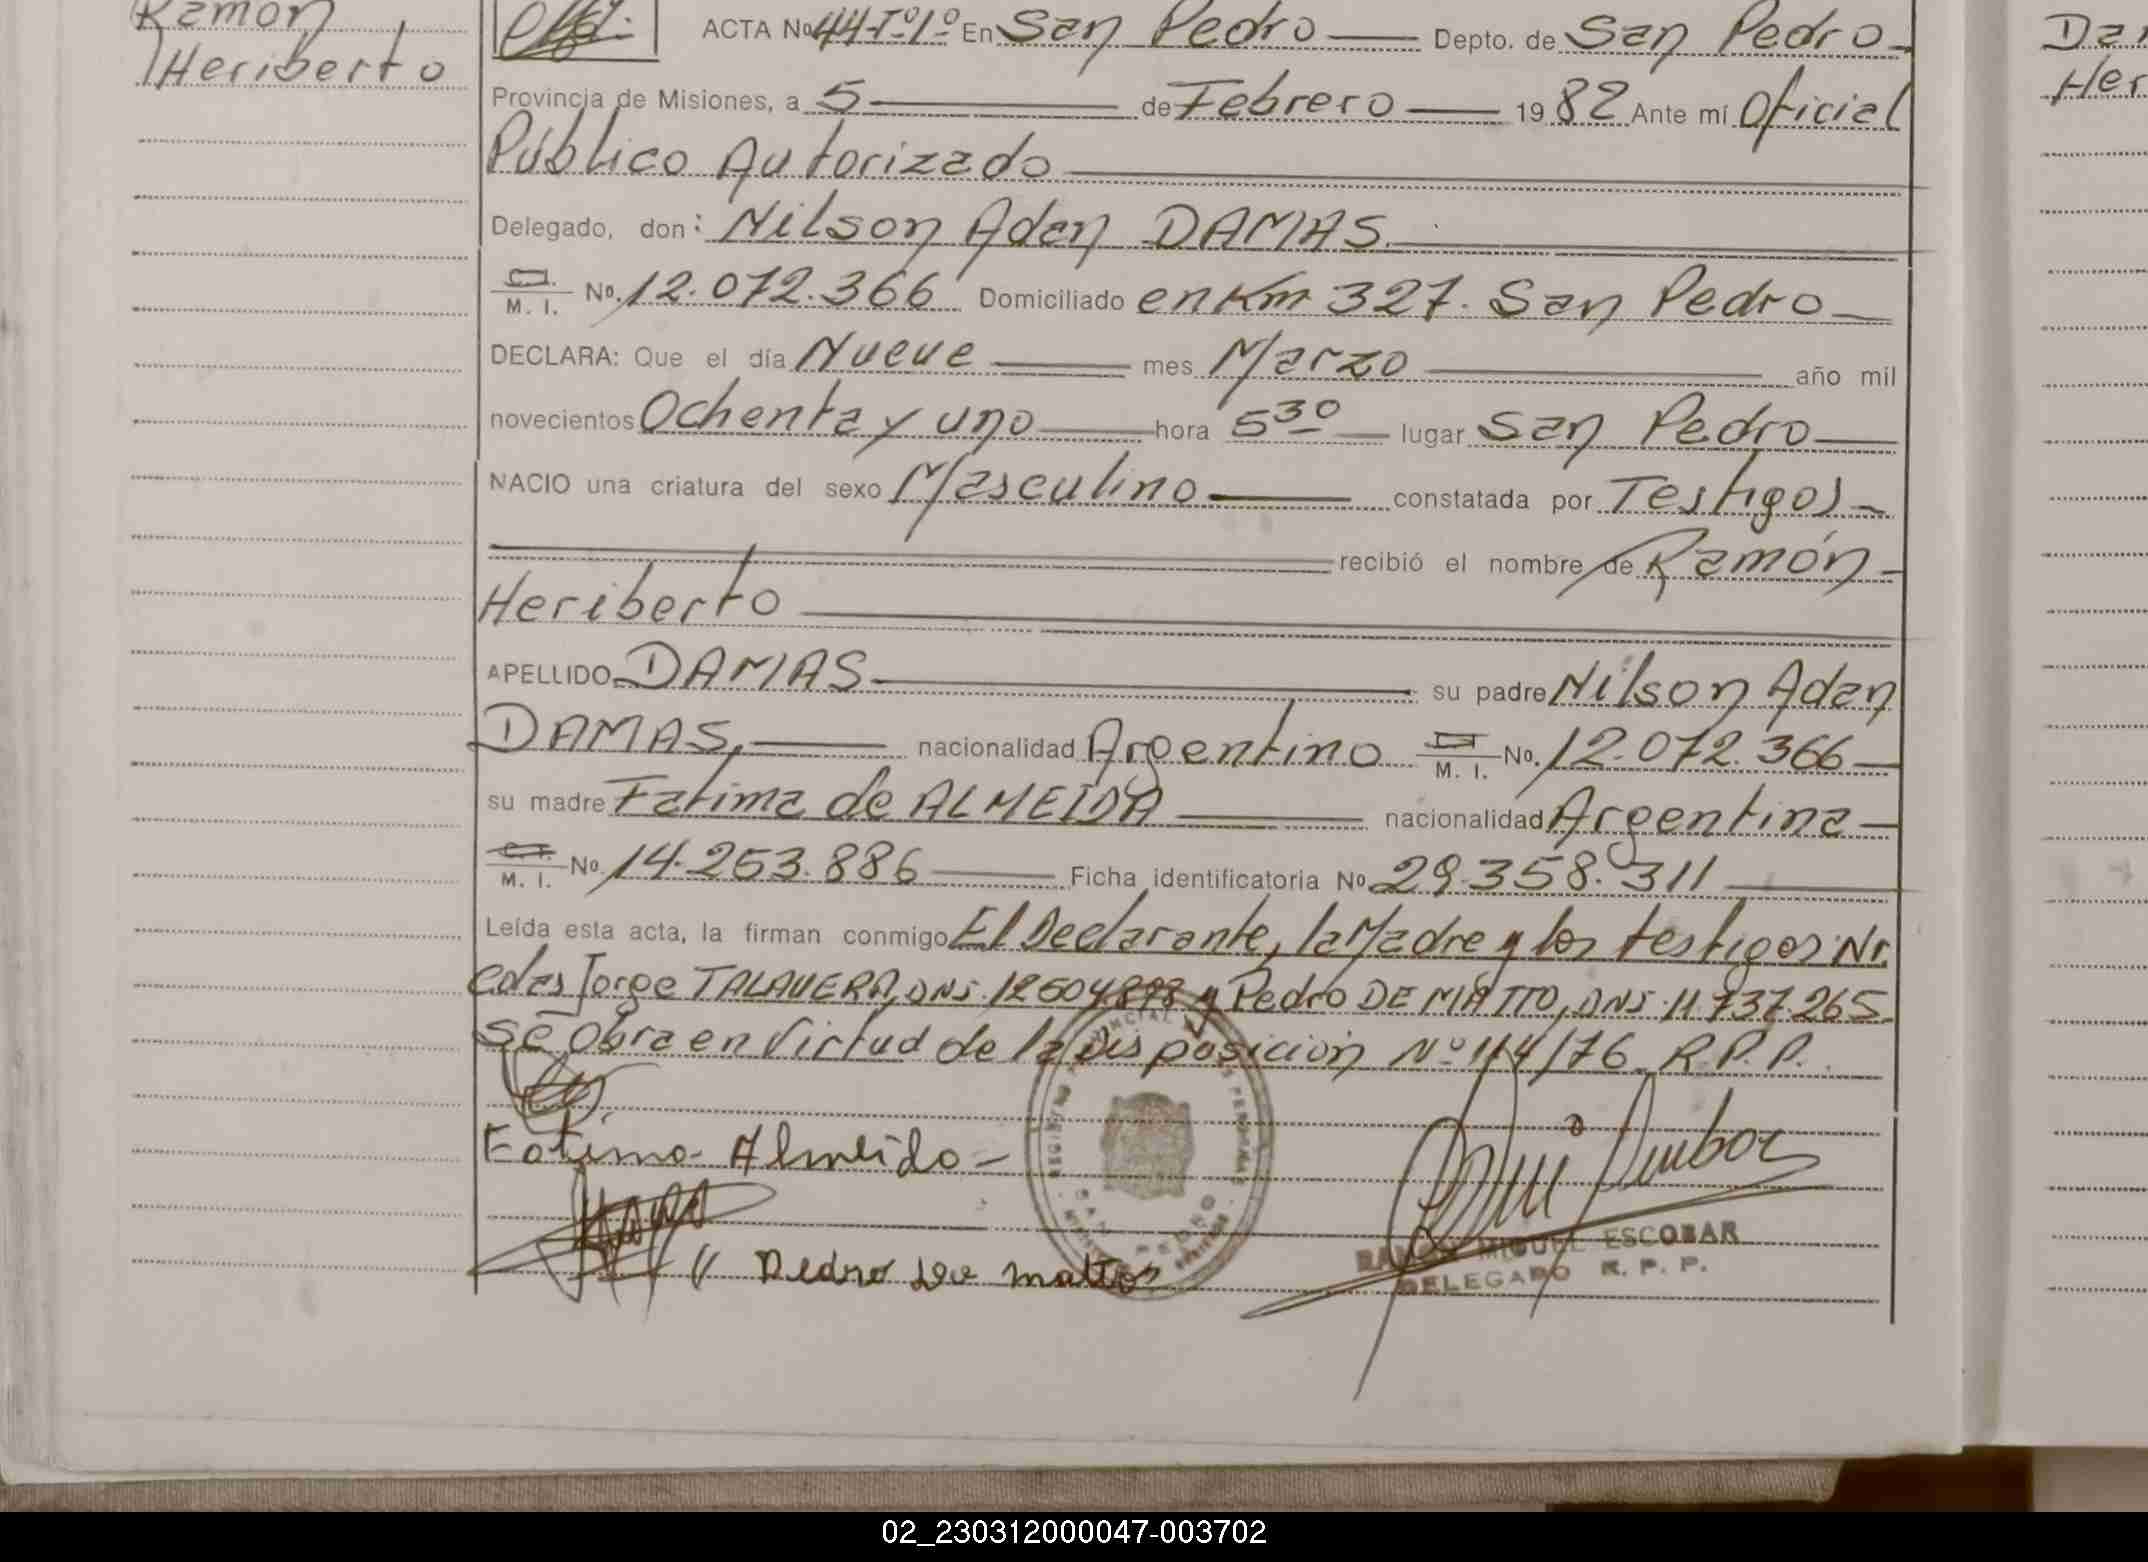 Ramón
Heriberto
ACTA No 44-Tº1º En San Pedro Depto. de San Pedro
Provincia de Misiones, a 5 de Febrero 1982 Ante mí Oficial
Público Autorizado
Delegado, don: Nilson Adan DAMAS
C.I. M. I. No. 12.072.366 Domiciliado en Km 327. San Pedro
DECLARA: Que el día Nueve mes Marzo año mil
novecientos Ochenta y uno hora 5 30 lugar San Pedro
NACIO una criatura del sexo Masculino constatada por Testigos
recibió el nombre de Ramón
Heriberto
APELLIDO DAMAS su padre Nilson Adan
DAMAS, nacionalidad Argentino C.I. M. I. No. 12.072.366
su madre Fatima de ALMEIDA nacionalidad Argentina
C.I. M. I. No. 14.253.886 Ficha identificatoria No 29.358.311
Leída esta acta, la firman conmigo El Declarante, la Madre y los testigos Ni
colas Jorge TALAVERA, DNI. 12604898 y Pedro DE MATTO, DNI. 11.737.265
Se obra en Virtud de la Disposición Nº 114/76 R.P.P.
Fatima Almeida
Pedro De mattos
RAMON MIGUEL ESCOBAR
DELEGADO R. P. P.
Da
Her
02_230312000047-003702